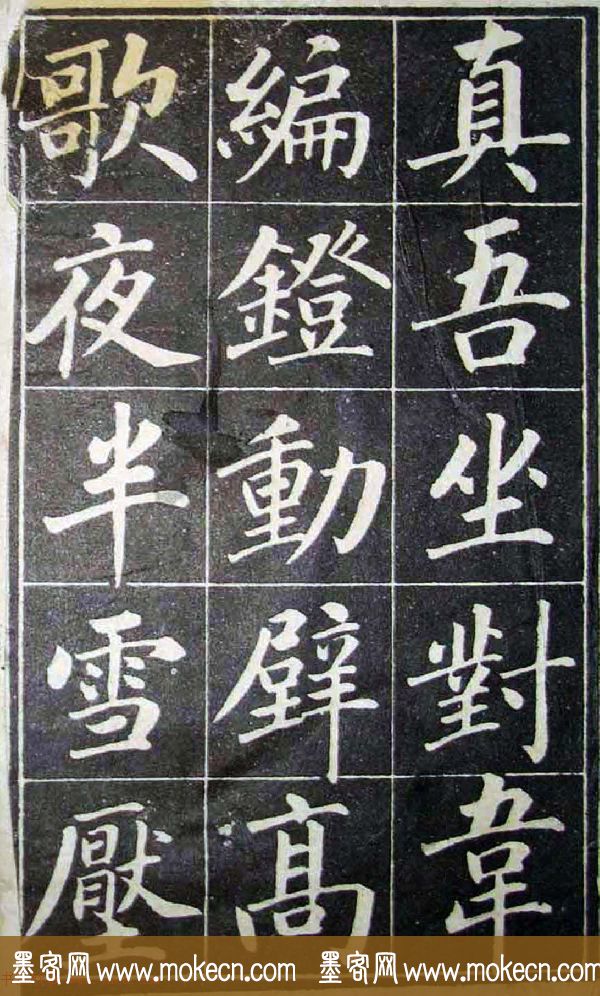 真吾坐對韋
編鐙動壁高
歌夜半雪壓
墨客网 www.mokecn.com 墨客网 www.mokecn.com